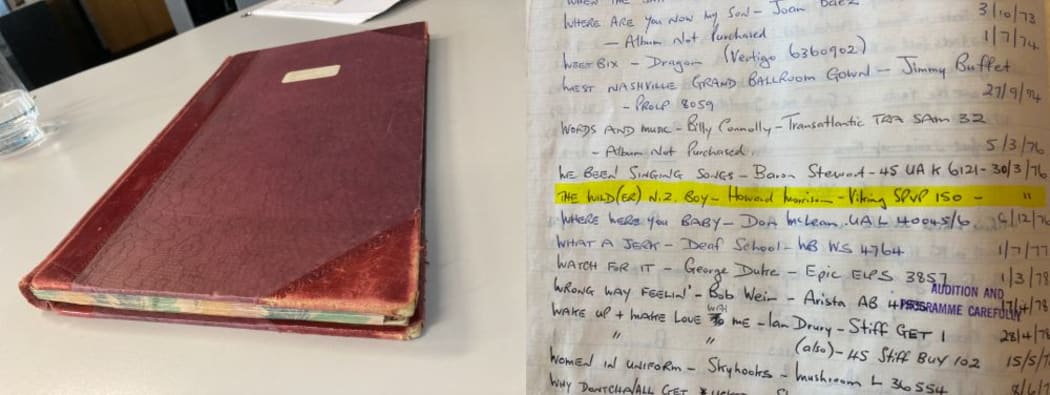 WHERE ARE YOU NOW MY SON - Joan Baez 3/10/73
- Album Not Purchased 1/7/74
WEET BIX - Dragon (Vertigo 6360902)
WEST NASHVILLE GRAND BALLROOM GOWN - Jimmy Buffet
- PROLP 8059 27/9/74
WORDS AND MUSIC - Billy Connolly - Transatlantic TRA SAM 32
- Album Not Purchased 5/3/76
WE BEEN SINGING SONGS - Baron Stewart - 45 UA K 6121 - 30/3/76
THE WILD(ER) N.Z. BOY - Howard Morrison - Viking SPVP 150 - "
WHERE WERE YOU BABY - Don McLean. UAL 40045/6 6/12/76
WHAT A JERK - Deaf School - WB WS 4764 1/7/77
WATCH FOR IT - George Duke - Epic ELPS 3857 1/3/78
AUDITION AND
WRONG WAY FEELIN' - Bob Weir - Arista AB 17/4/78
PROGRAMME CAREFULLY
WAKE UP + MAKE LOVE WITH ME - Ian Drury - Stiff GET 1 28/4/78
" " (also) - 45 Stiff BUY 102 15/5/7
WOMEN IN UNIFORM - Skyhooks - Mushroom L 36554
WHY DONTCHA/ALL GET